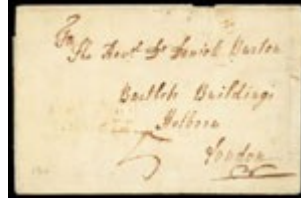 To
The Revd. Dr. Daniel Burton
Bartlets Buildings
Holborn
London
5